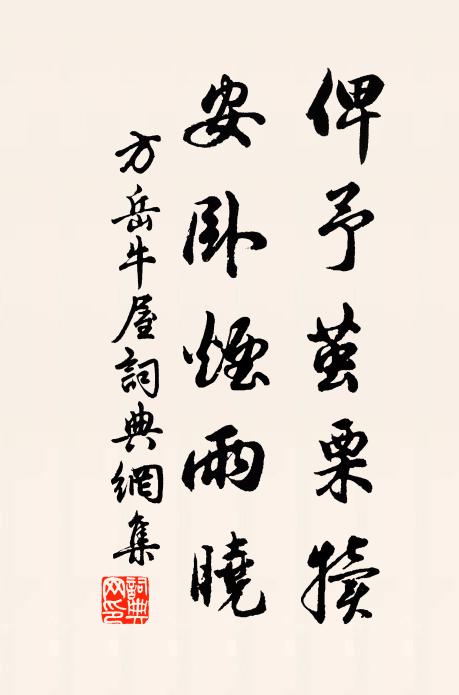 俾予茧栗犢
安臥煙雨曉
方岳牛屋詞典網集
詞典
网印